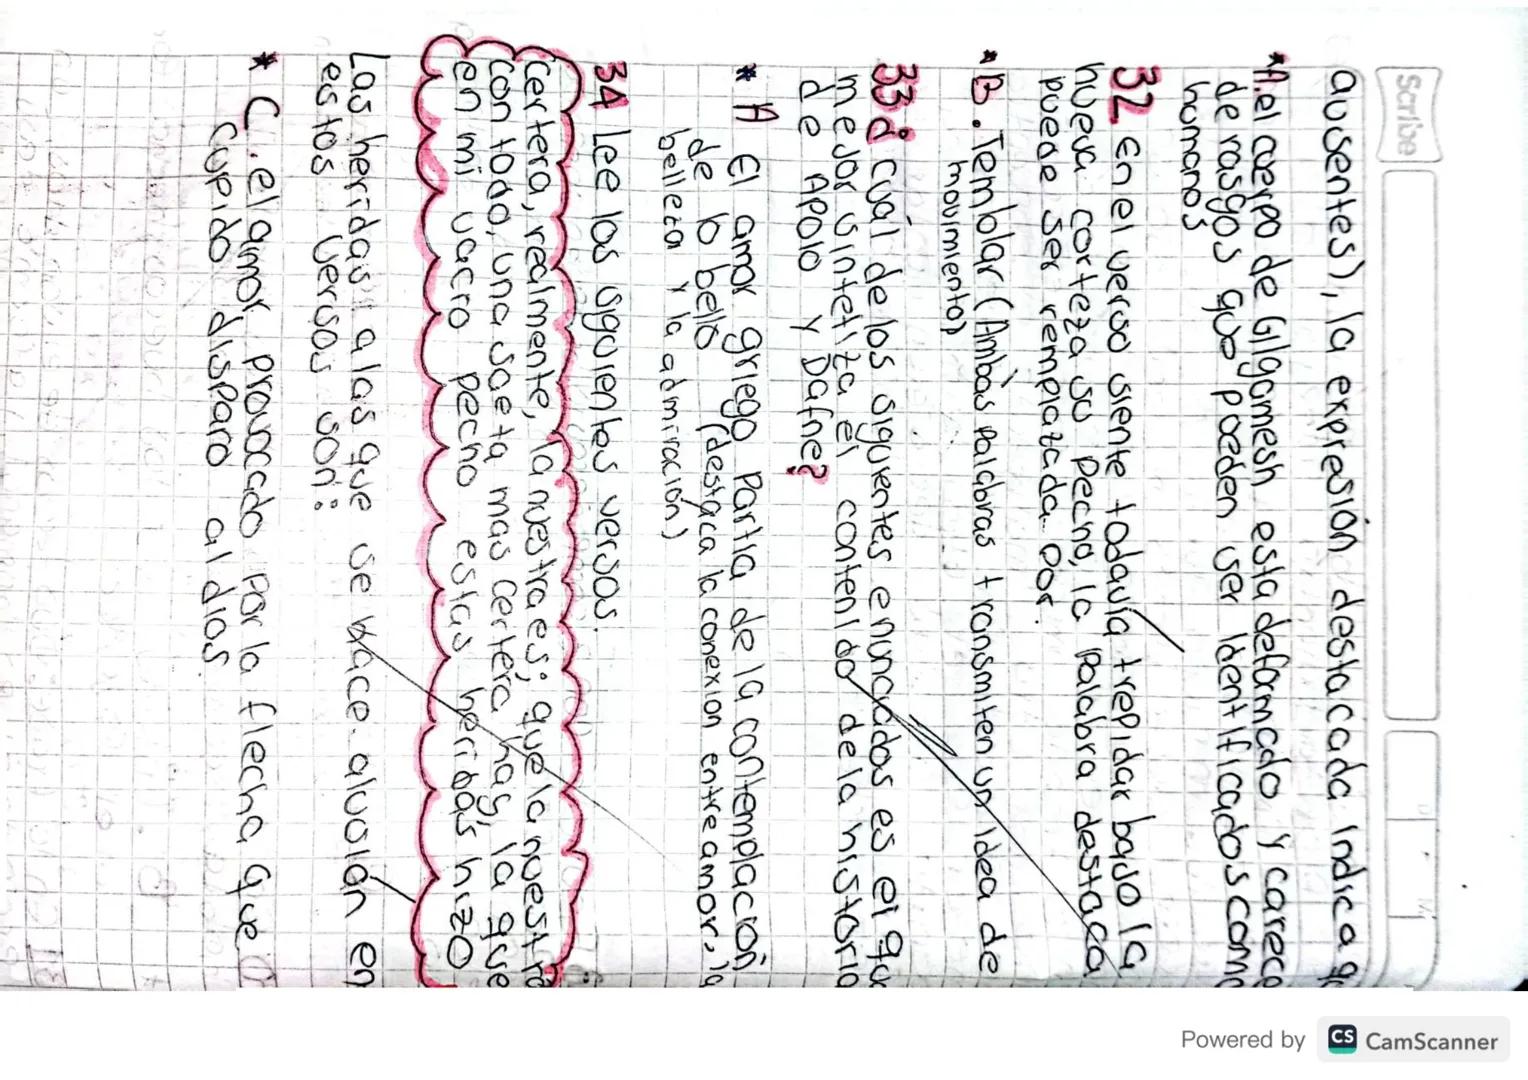 Scribe
ausentes), la expresión destacada indica q
*A. el cuerpo de Gilgamesh esta deformado y carece
de rasgos que pueden ser identificados como
humanos
32 en el verso siente todavía trepidar bajo la
nueva corteza su pecho, la palabra destaca
puede ser remplazada por
*B. Temblar (Ambas palabras transmiten un idea de
movimiento)
33 ¿Cuál de los siguientes enunciados es el que
mejor sintetiza el contenido de la historia
de Apolo y Dafne?
* A El amor griego partia de la contemplación
de lo bello (destaca la conexion entre amor, la
belleza y la admiración)
34 Lee los siguientes versos.
Certera, realmente, la nuestra es; que la nuestra
con todo, una saeta mas certera hay, la que
en mi vacro pecho estas heridas hizo
Las heridas a las que se hace alusión en
estos versos son:
* C. el amor provocado por la flecha que
Cupido disparo al dios
Powered by CS CamScanner